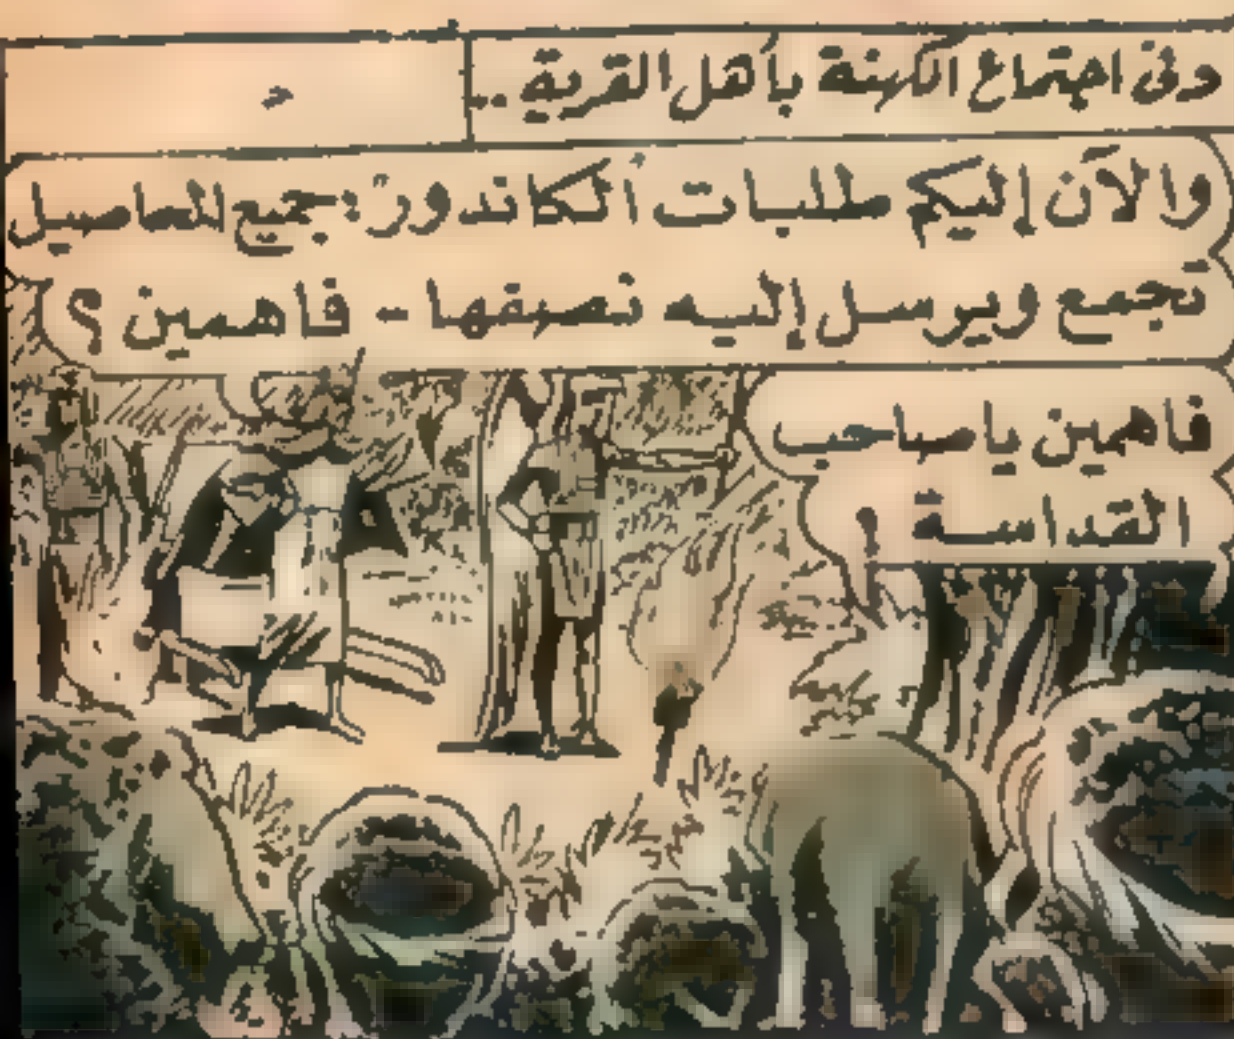 وفى اجتماع الكهنة بأهل القرية ..
والآن إليكم طلبات ألكاندور: جميع المحاصيل
تجمع ويرسل إليه نصفها - فاهمين ؟
فاهمين ياصاحب
القداسة !